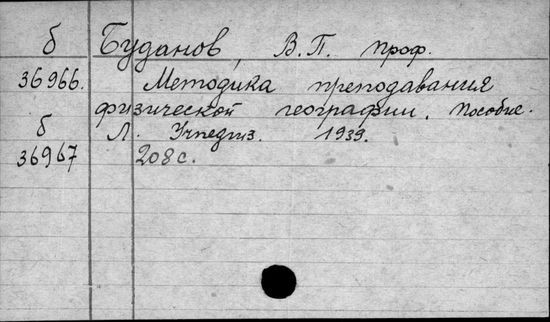 б Буданов, В.П. проф.
36966. Методика преподавания
физической географии. Пособие.
б Л. Учпедгиз. 1939.
36967 208 с.